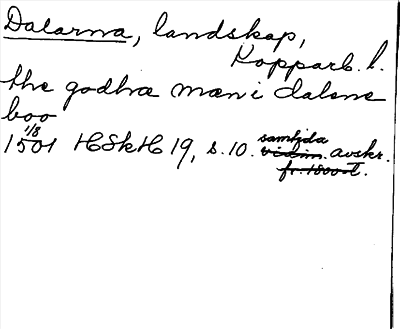 Dalarna, landskap,
Kopparb. l.
the godhæ mæn i dalene
boo
1/8
1501 HSkH 19, s. 10. samtida avskr.
vidim.
fr. 1800-t.